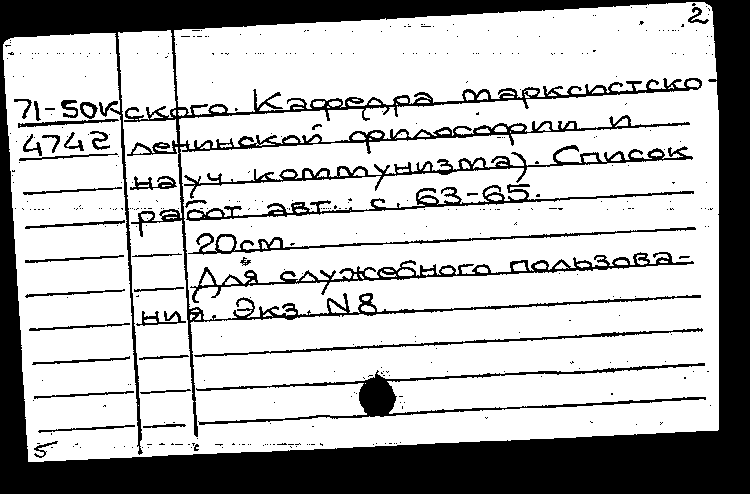 2
71-50К ского. Кафедра марксистско-
4742 ленинской философии и
науч. коммунизма). Список
работ авт.: с. 63-65.
20см.
Для служебного пользова-
ния. Экз. N8.
5